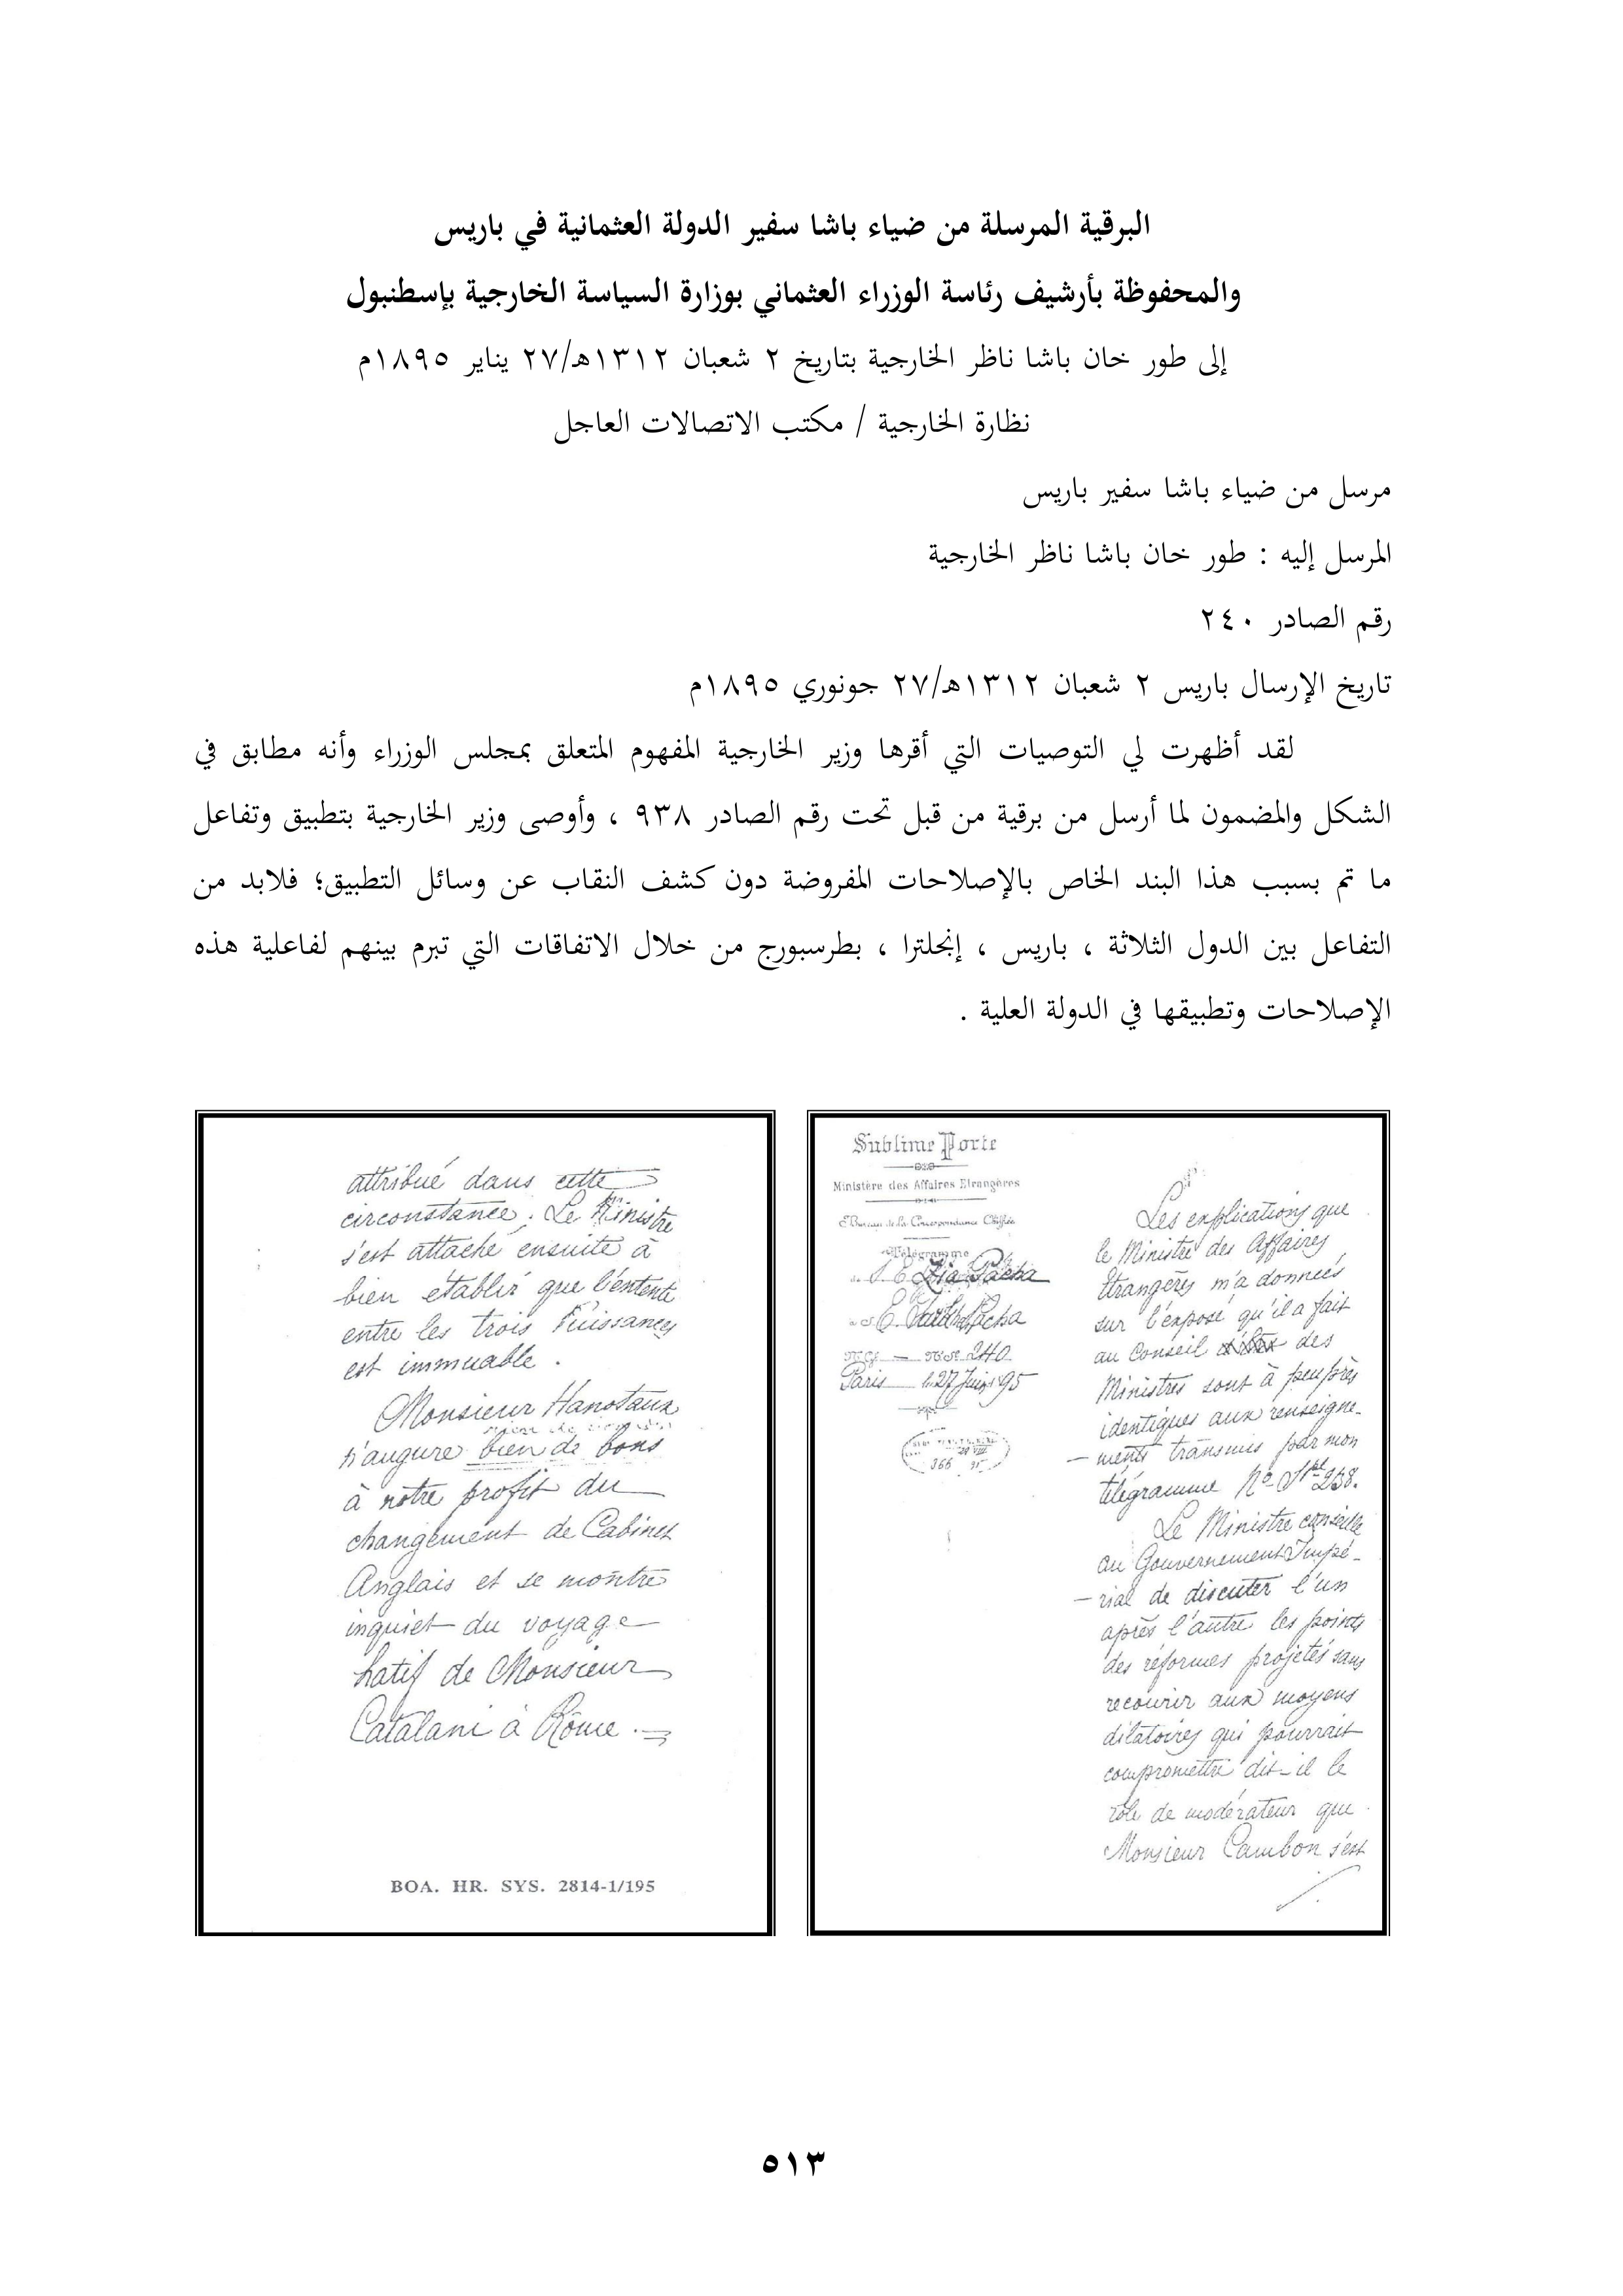 البرقية المرسلة من ضياء باشا سفير الدولة العثمانية في باريس
والمحفوظة بأرشيف رئاسة الوزراء العثماني بوزارة السياسة الخارجية بإسطنبول
إلى طور خان باشا ناظر الخارجية بتاريخ ٢ شعبان ١٣١٢هـ/٢٧ يناير ١٨٩٥م
نظارة الخارجية / مكتب الاتصالات العاجل
مرسل من ضياء باشا سفير باريس
المرسل إليه : طور خان باشا ناظر الخارجية
رقم الصادر ٢٤٠
تاريخ الإرسال باريس ٢ شعبان ١٣١٢هـ/٢٧ جونوري ١٨٩٥م
لقد أظهرت لي التوصيات التي أقرها وزير الخارجية المفهوم المتعلق بمجلس الوزراء وأنه مطابق في
الشكل والمضمون لما أرسل من برقية من قبل تحت رقم الصادر ٩٣٨ ، وأوصى وزير الخارجية بتطبيق وتفاعل
ما تم بسبب هذا البند الخاص بالإصلاحات المفروضة دون كشف النقاب عن وسائل التطبيق؛ فلابد من
التفاعل بين الدول الثلاثة ، باريس ، إنجلترا ، بطرسبورج من خلال الاتفاقات التي تبرم بينهم لفاعلية هذه
الإصلاحات وتطبيقها في الدولة العلية .
Sublime Porte
Ministère des Affaires Etrangères
Bureau de la Correspondance Chiffrée
Télégramme
de S. E. Zia Pacha
à S. E. Pacha
240
Paris le 27 95
366
Les explications que
le Ministre des Affaires
Étrangères m'a données
sur l'exposé qu'il a fait
au Conseil des
Ministres sont à peu près
identiques aux renseigne-
-ments transmis par mon
télégramme No
Le Ministre conseille
au Gouvernement Impé-
-rial de discuter l'un
après l'autre les points
des réformes projetés sans
recourir aux moyens
dilatoires qui pourrait
compromettre dit-il le
rôle de modérateur que
Monsieur Cambon s'est
attribué dans cette
circonstance. Le Ministre
s'est attaché ensuite à
bien établir que l'entente
entre les trois Puissances
est immuable.
Monsieur Hanotaux
n'augure bien de bons
à notre profit du
changement de Cabinet
Anglais et se montre
inquiet du voyage
hatif de Monsieur
Catalani à Rôme.
BOA. HR. SYS. 2814-1/195
٥١٣